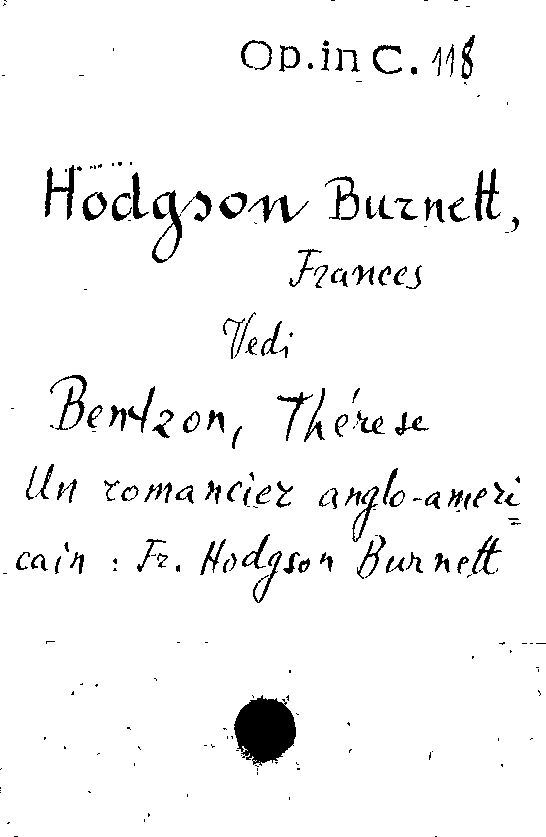 Op. in C. 118
Hodgson Burnett,
Frances
Vedi
Bentzon, Thérese
Un romancier anglo-ameri=
cain : Fr. Hodgson Burnett